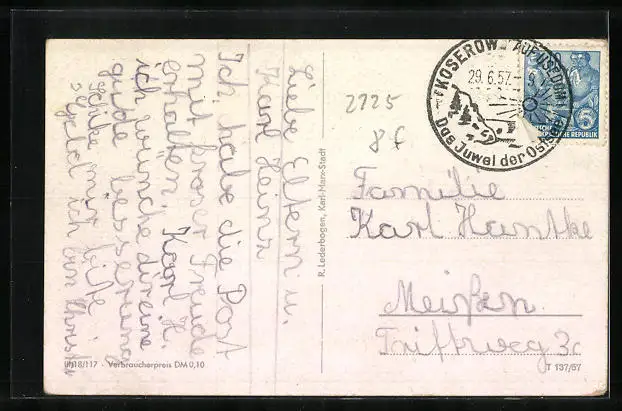 Liebe Eltern u.
Karl Heinz
Ich habe die Post
mit groser Freude
erhalten. Karl H.
ich wünche dir eine
gude besserung
schike mir bitte
geld ich bin Christa
2225
8 f
KOSEROW AUF USEDOM
29.6.57
Das Juwel der Ostsee
5
DEUTSCHE
DEMOKRATISCHE REPUBLIK
Familie
Karl Hantke
Meißen
Triftweg 3c
R. Lederbogen, Karl-Marx-Stadt
III/18/117 · Verbraucherpreis DM 0,10
T 137/57